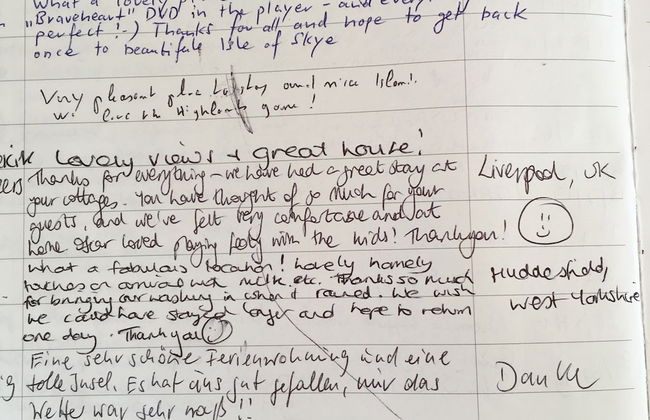 What a lovely
"Braveheart" DVD in the player - and every
perfect! :-) Thanks for all and hope to get back
once to beautifull Isle of Skye
Very pleasant place to stay and nice Islan!.
We live the Highlands game!
Lovely views + great house!
Thanks for everything - we have had a great stay at Liverpool, UK
your cottages. You have thought of so much for your
guests, and we've felt very comfortable and at
home Oscar loved playing footy with the kids! Thankyou!
What a fabulous location! Lovely homely
touches on arrival with milk etc. Thanks so much Huddersfield,
for bringing our washing in when it rained. We wish West Yorkshire
we could have stayed longer and hope to return
one day. Thankyou
Eine sehr schöne Ferienwohnung und eine
tolle Insel. Es hat uns gut gefallen, nur das Danke
Wetter war sehr naß!!